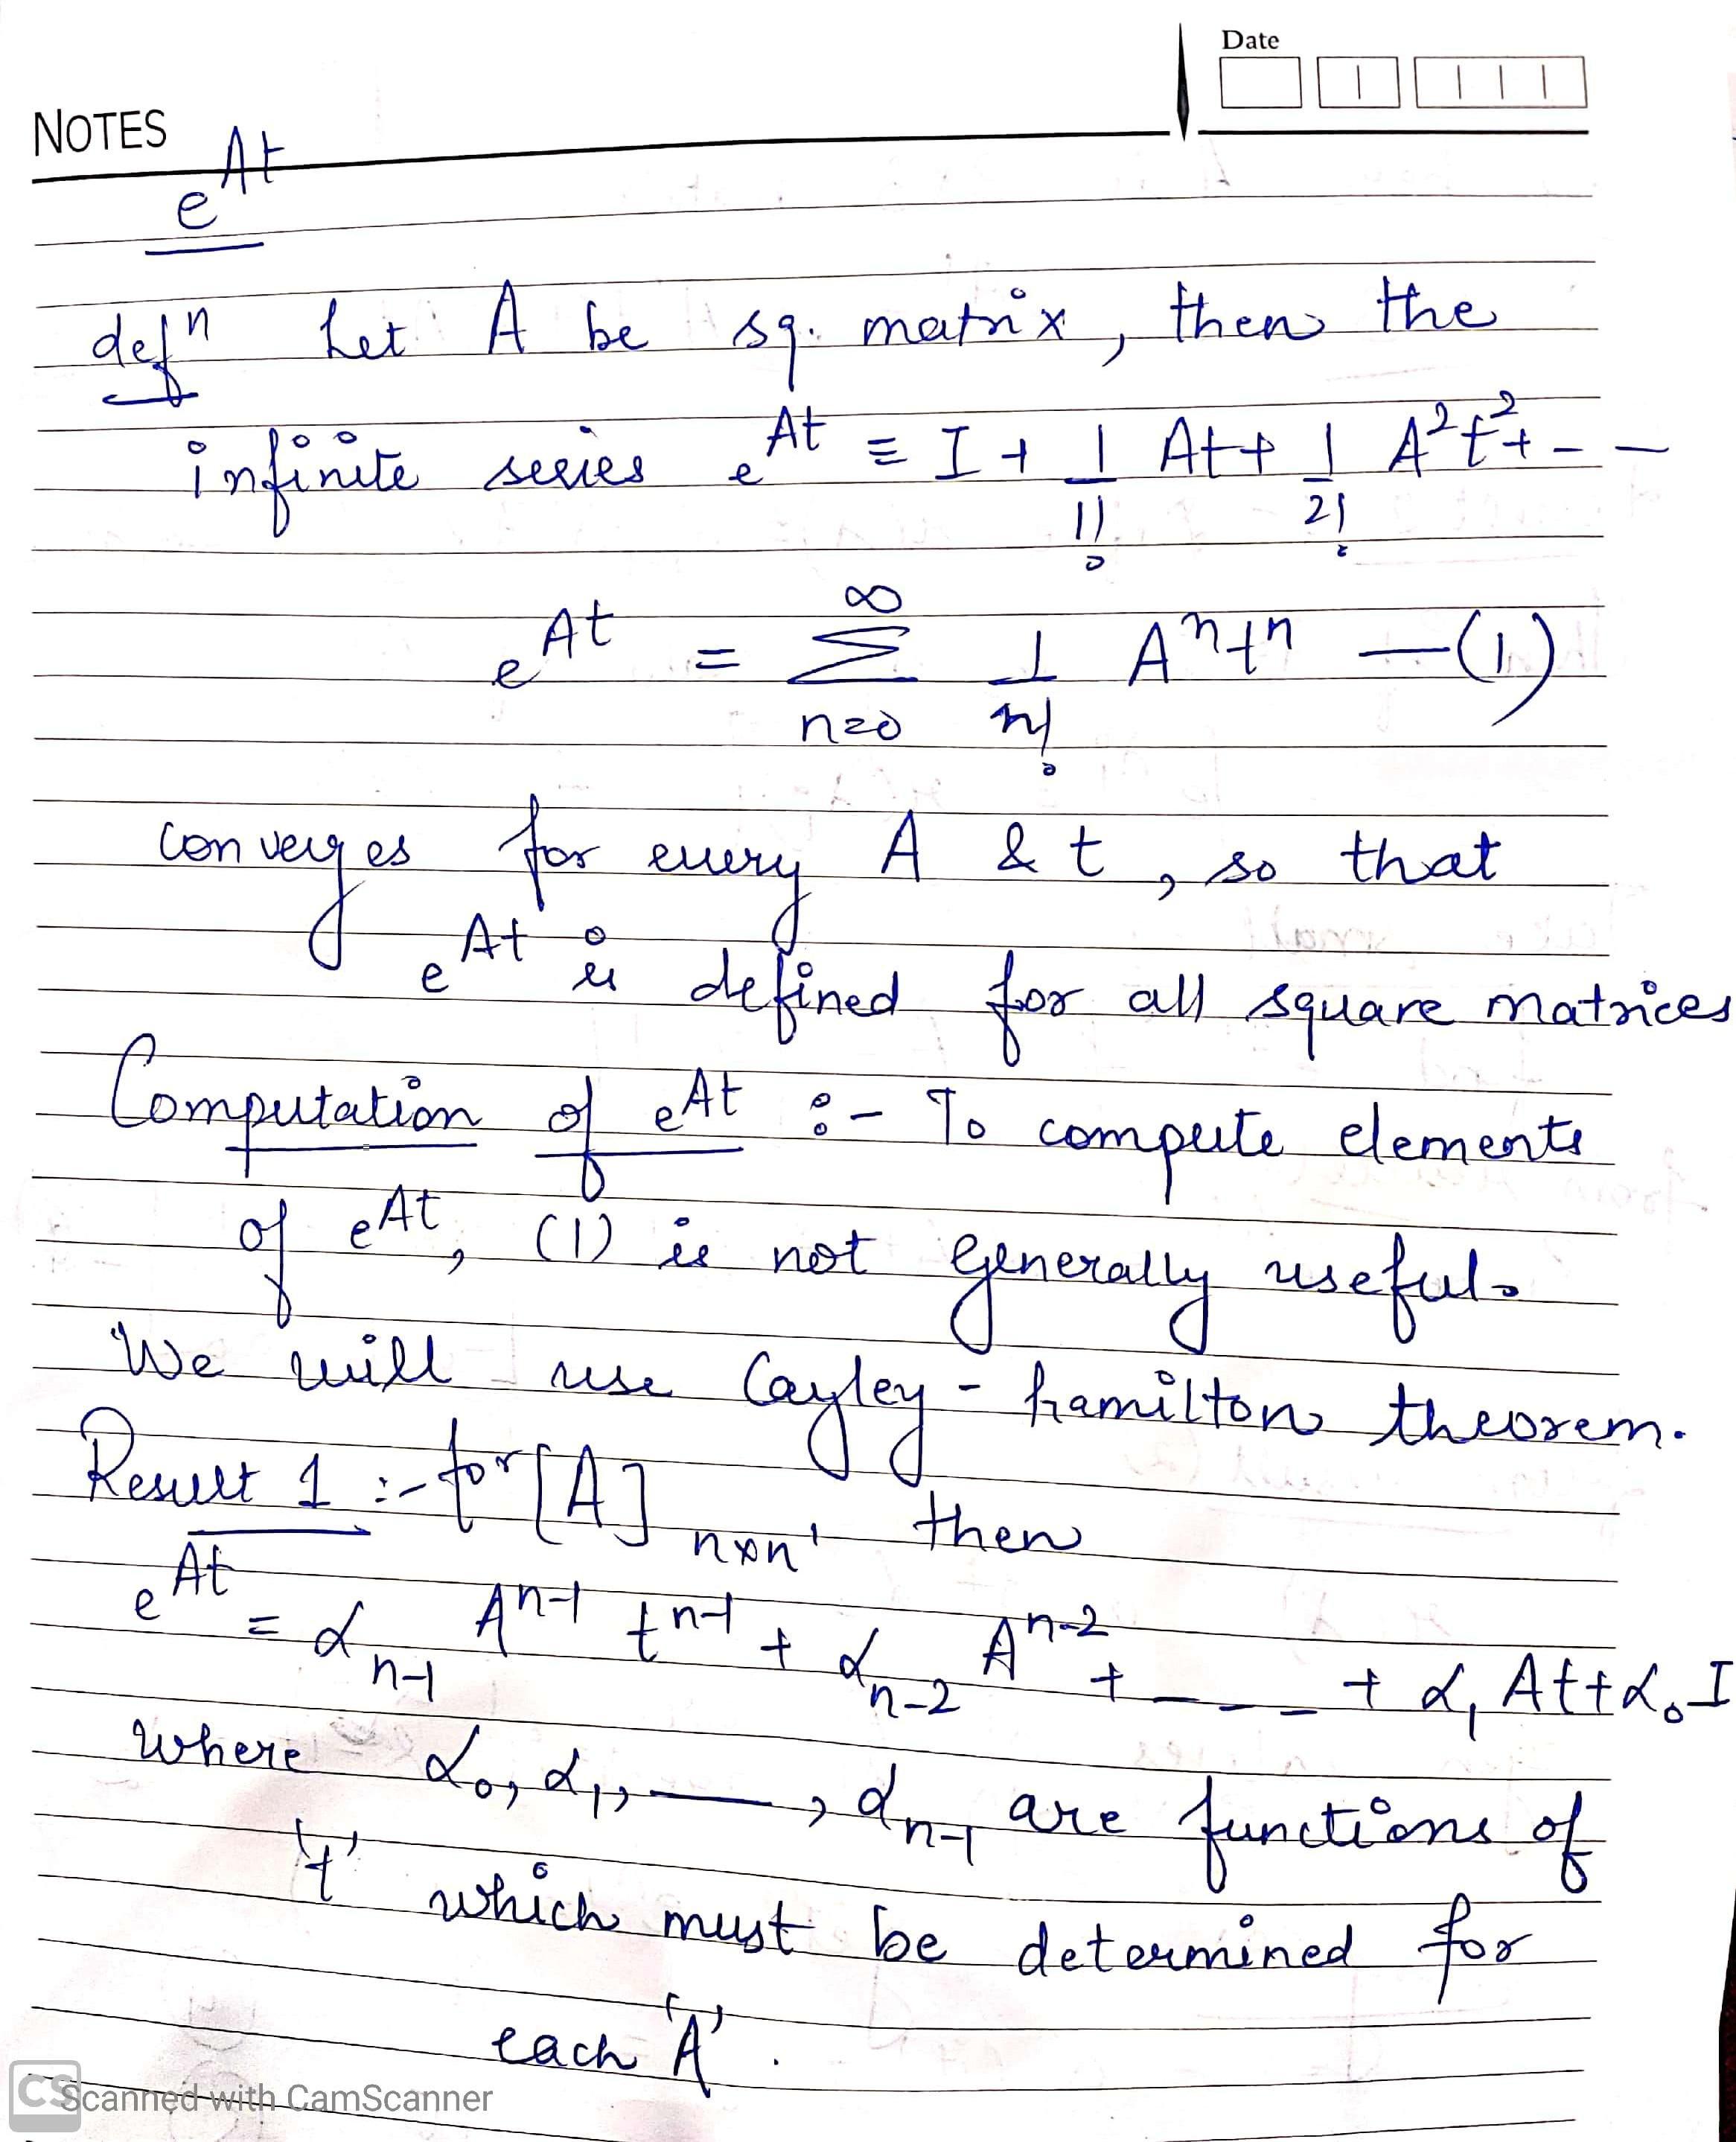 Date
NOTES
e^At
defⁿ Let A be sq. matrix, then the
infinite series e^At ≡ I + 1/1! At + 1/2! A²t² + - -
e^At = ∞ Σ n=0 1/n! Aⁿtⁿ —(1)
converges for every A & t, so that
e^At is defined for all square matrices
Computation of e^At :- To compute elements
of e^At, (1) is not generally useful.
We will use Cayley - hamilton theorem.
Result 1 :- for [A] n×n, then
e^At = α_n-1 A^n-1 t^n-1 + α_n-2 A^n-2 + - - - + α₁ At + α₀ I
where α₀, α₁, —, α_n-1 are functions of
't' which must be determined for
each 'A'.
CS Scanned with CamScanner